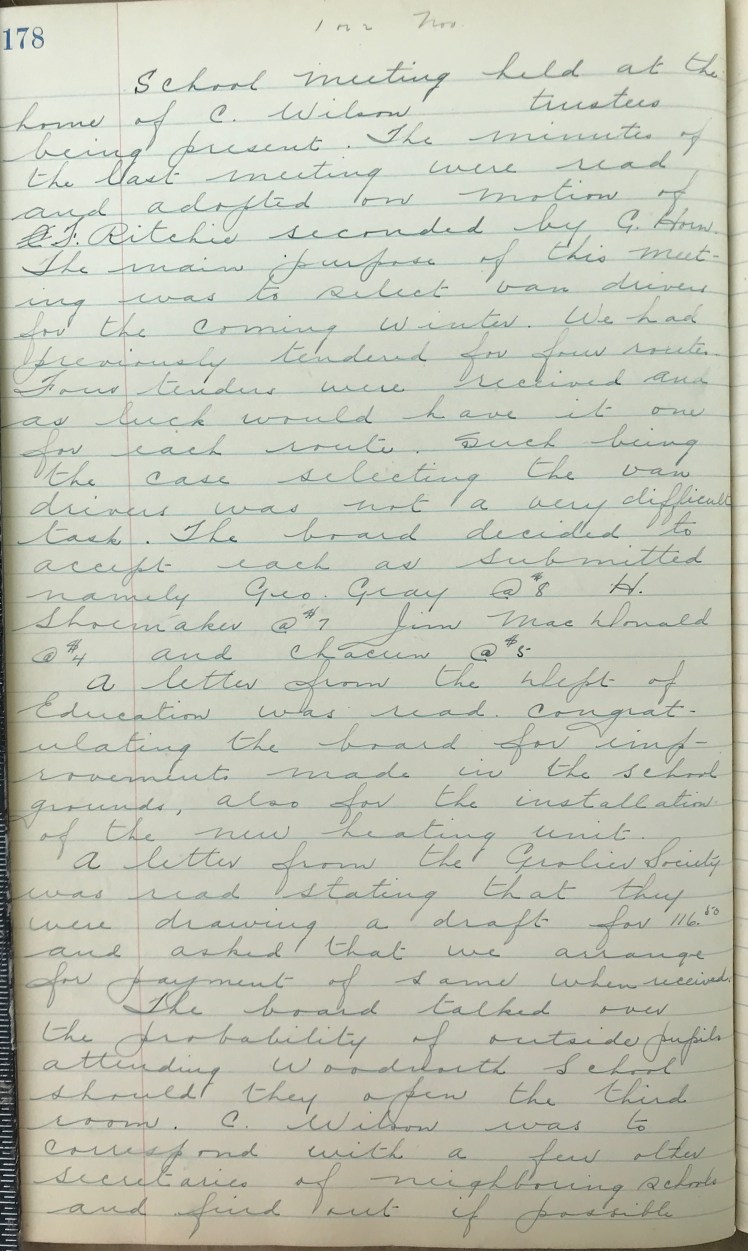 1 or 2 Nov.
178
School meeting held at the
home of C. Wilson trustees
being present. The minutes of
the last meeting were read
and adopted on motion of
F. Ritchie seconded by G. Horn.
The main purpose of this meet-
ing was to select van drivers
for the coming winter. We had
previously tendered for four routes.
Four tenders were received and
as luck would have it one
for each route. Such being
the case selecting the van
drivers was not a very difficult
task. The board decided to
accept each as submitted
namely Geo. Gray @ $8 H.
Shoemaker @ $7 Jim MacDonald
@ $4 and Chacun @ $5
A letter from the Dept of
Education was read. congrat-
ulating the board for imp-
rovements made in the school
grounds, also for the installation
of the new heating unit.
A letter from the Grolier Society
was read stating that they
were drawing a draft for 116.50
and asked that we arrange
for payment of same when received.
The board talked over
the probability of outside pupils
attending Woodnorth School
should they open the third
room. C. Wilson was to
correspond with a few other
secretaries of neighboring schools
and find out if possible